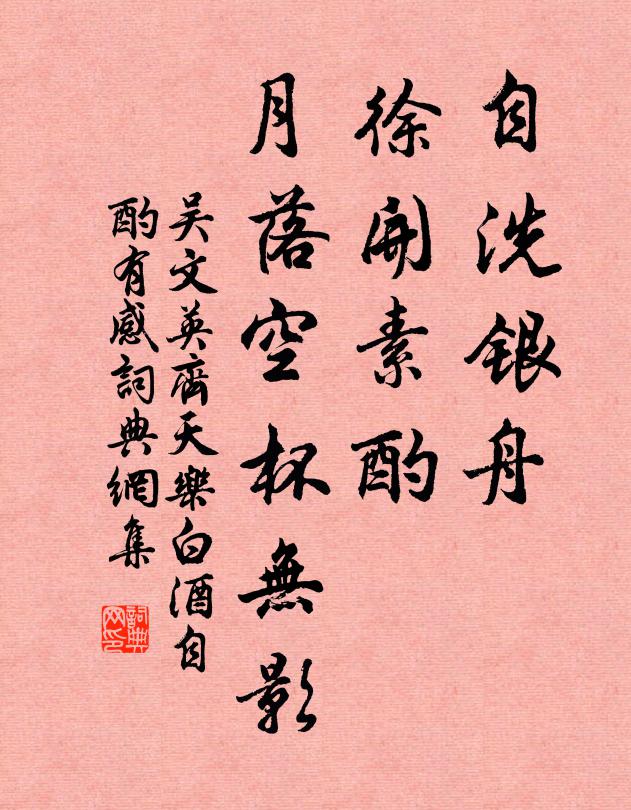 自洗銀舟
徐開素酌
月落空杯無影
吴文英齊天樂白酒自
酌有感詞典網集
詞典网印